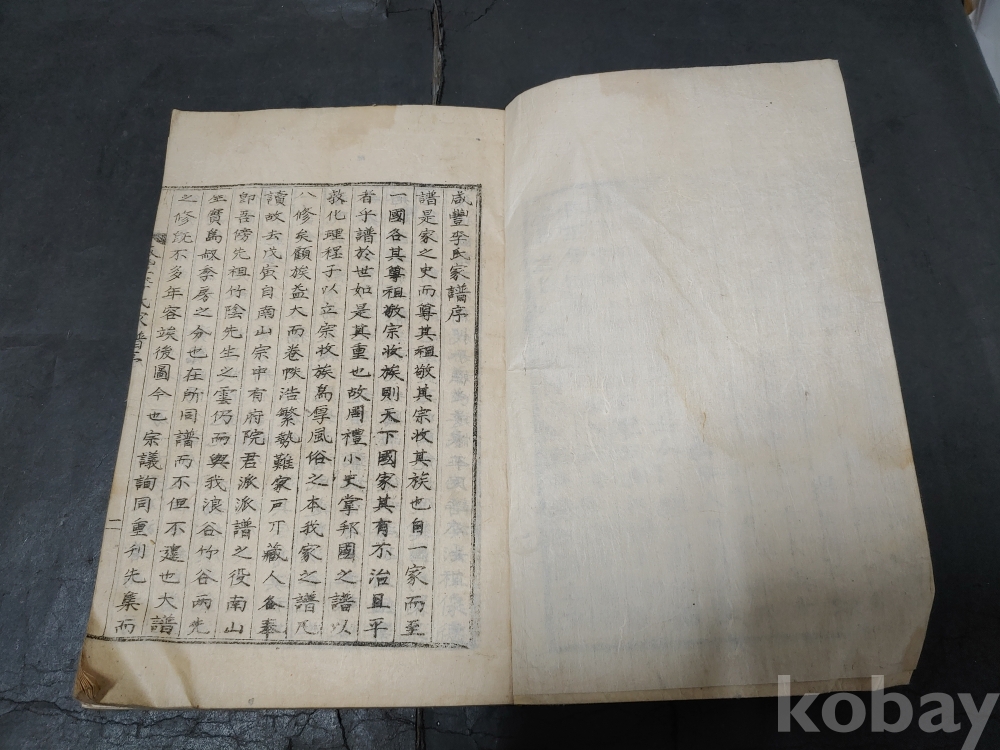 咸豐李氏家譜序
譜是家之史而尊其祖敬其宗收其族也自一家而至
一國各其尊祖敬宗收族則天下國家其有不治且平
者乎譜於世如是其重也故周禮小史掌邦國之譜以
敎化理程子以立宗收族爲厚風俗之本我家之譜凡
八修矣顧族益大而卷帙浩繁勢難家可藏人各奉
讀故去戊寅自南山宗中有府院君派派譜之役南山
卽吾傍先祖竹陰先生之雲仍而與我浪谷竹谷兩先
坐實爲叔季房之分也在所同譜而不但不遑也大譜
之修旣不多年容竢後圖今也宗議詢同重刊先集而
氏家譜
二
kobay